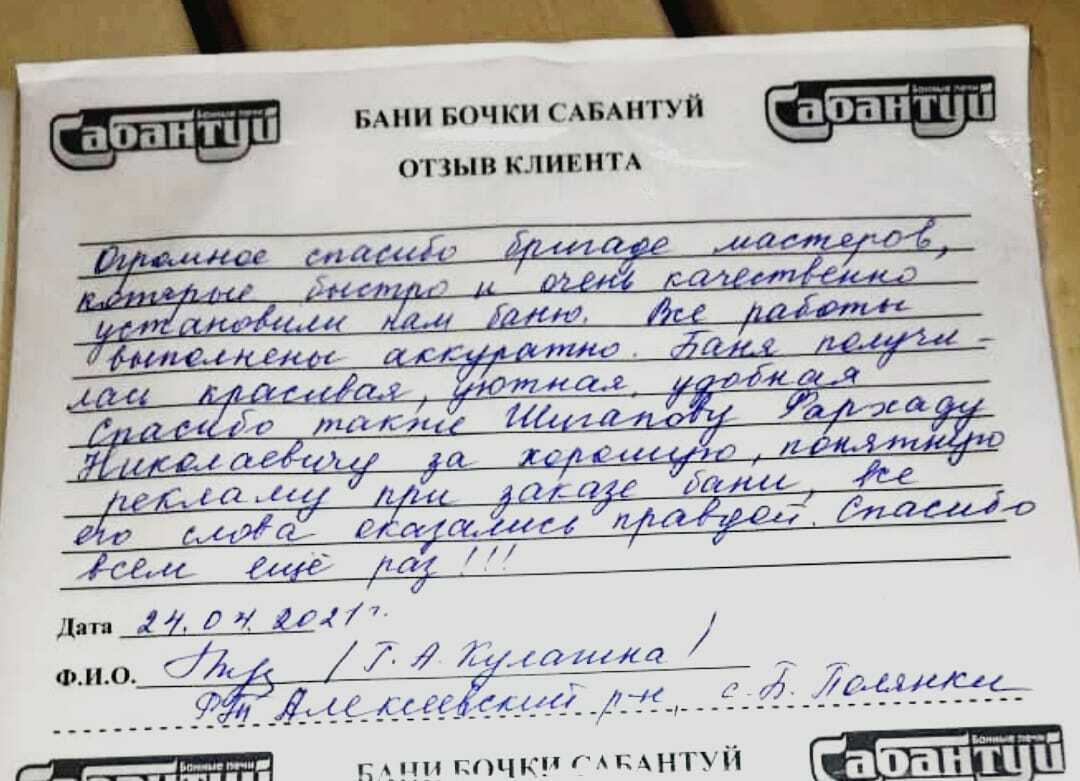 Банные печи
Сабантуй
БАНИ БОЧКИ САБАНТУЙ
Банные печи
Сабантуй
ОТЗЫВ КЛИЕНТА
Огромное спасибо бригаде мастеров,
которые быстро и очень качественно
установили нам баню. Все работы
выполнены аккуратно. Баня получи-
лась красивая, уютная, удобная
Спасибо также Шигапову Фархаду
Николаевичу за хорошую, понятную
рекламу при заказе бани, все
его слова оказались правдой. Спасибо
всем ещё раз!!!
Дата 24.04.2021г.
Ф.И.О. / Г. А. Кулагина /
РТ Алексеевский р-н, с. Б. Полянки
Банные печи
Сабантуй
БАНИ БОЧКИ САБАНТУЙ
Банные печи
Сабантуй